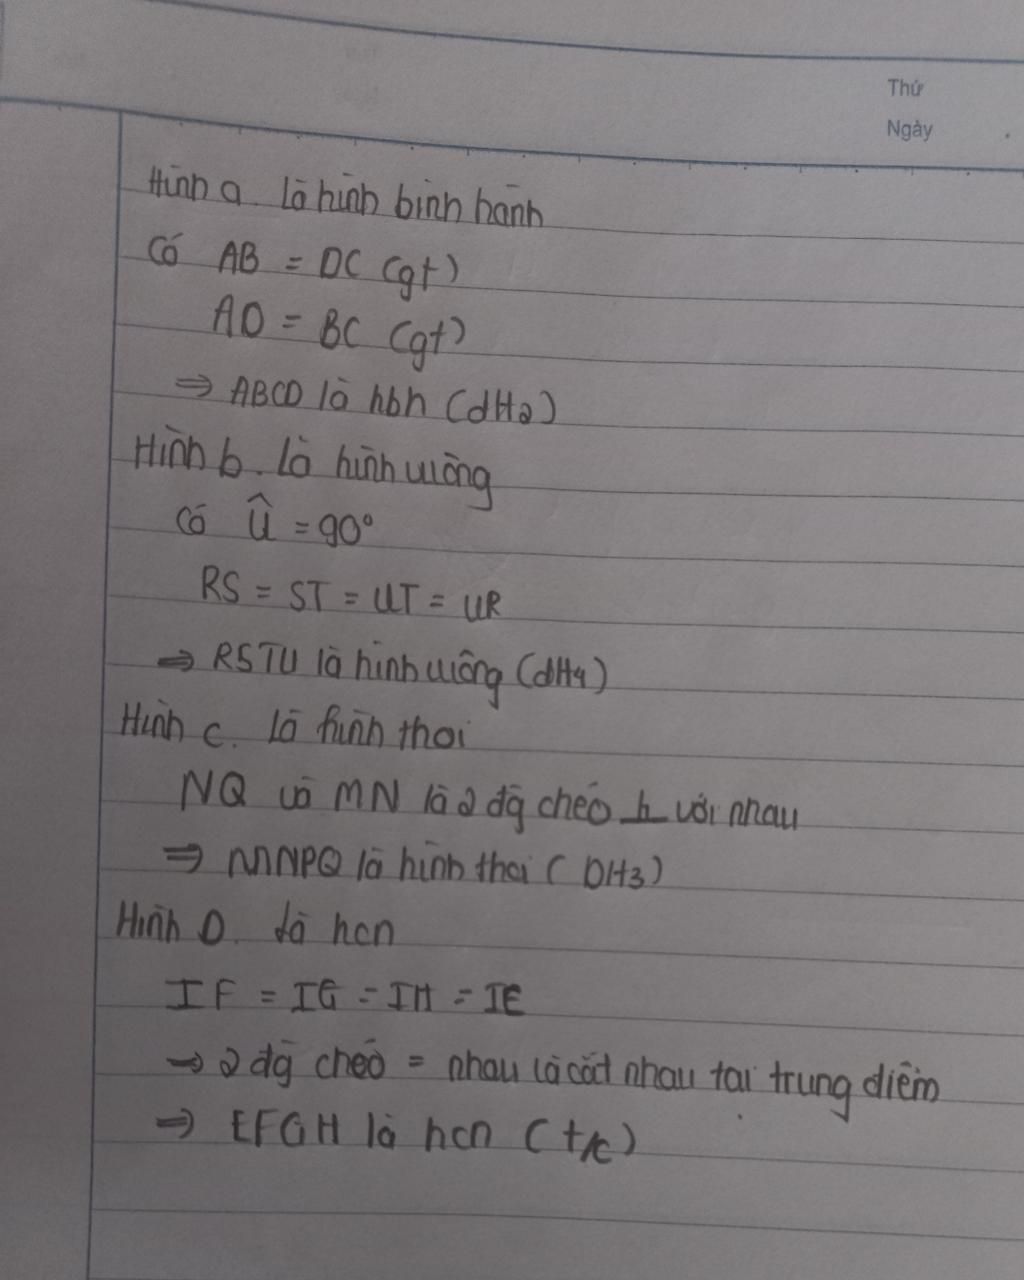 Thứ
Ngày
Hình a. là hình bình hành
Có AB = DC (gt)
AD = BC (gt)
⇒ ABCD là hbh (dH2)
Hình b. là hình vuông
Có Û = 90°
RS = ST = UT = UR
⇒ RSTU là hình vuông (dH4)
Hình c. là hình thoi
NQ và MN là 2 đg chéo ⊥ với nhau
⇒ MNPQ là hình thoi (DH3)
Hình D. là hcn
IF = IG = IH = IE
→ 2 đg chéo = nhau là cắt nhau tại trung điểm
⇒ EFGH là hcn (t/c)